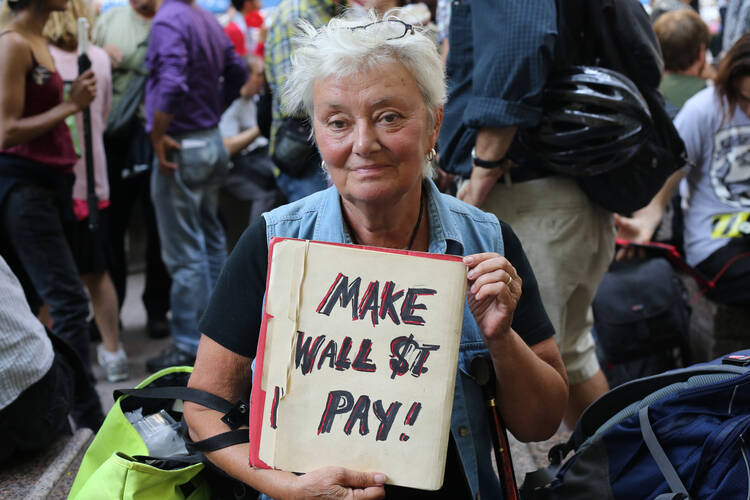 MAKE
WALL $T
PAY!